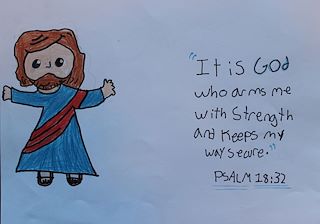 "It is God
who arms me
with Strength
and Keeps my
way secure."
PSALM 18:32